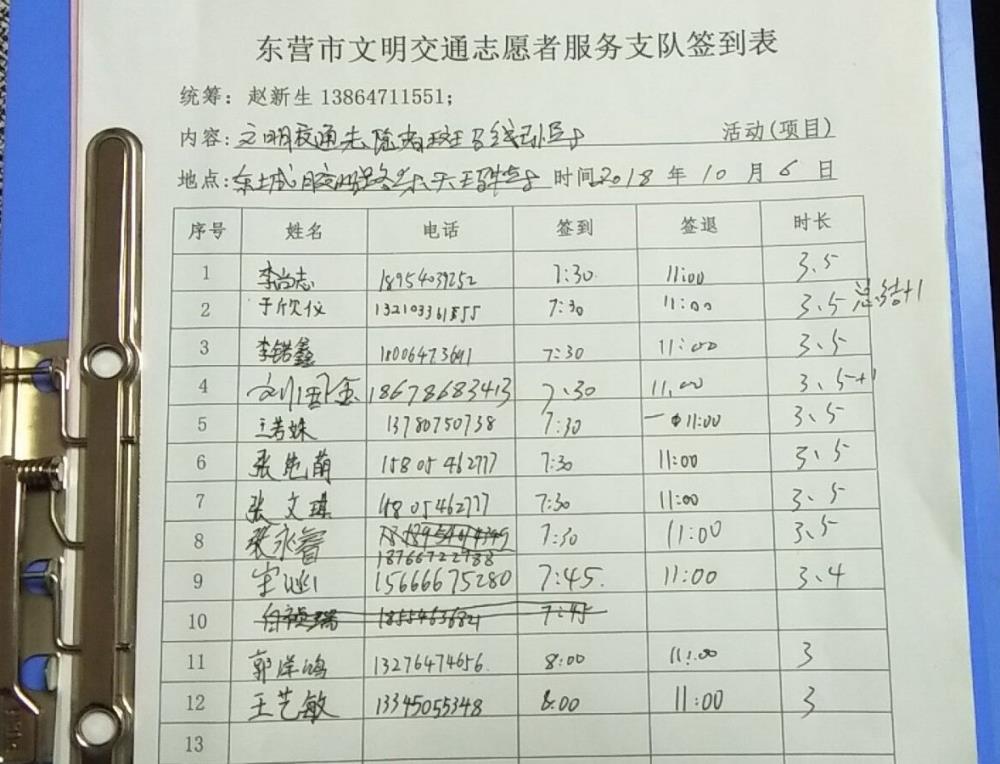 东营市文明交通志愿者服务支队签到表
统筹：赵新生 13864711551；
内容：文明交通 活动(项目)
地点：东城 时间2018年10月6日
序号 姓名 电话 签到 签退 时长
1 李尚志 18954039252 7:30 11:00 3.5
2 于欣仪 7:30 11:00 3.5 总结+1
3 李锴鑫 7:30 11:00 3.5
4 18678683413 7:30 11:00 3.5+1
5 13780750738 7:30 11:00 3.5
6 张 萌 15805462777 7:30 11:00 3.5
7 张文琪 15805462777 7:30 11:00 3.5
8 张永睿 18766722788 7:30 11:00 3.5
9 宋 15666675280 7:45. 11:00 3.4
10 7:45
11 郭洋鸿 13276474656. 8:00 11:00 3
12 王艺敏 13345055348 8:00 11:00 3
13